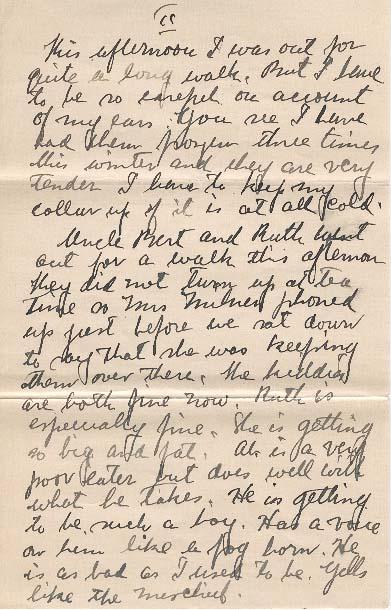 II
This afternoon I was out for
quite a long walk. But I have
to be so careful on account
of my ears. You see I have
had them frozen three times
this winter and they are very
tender I have to keep my
collar up if it is at all cold.
Uncle Bert and Ruth went
out for a walk this afternoon
they did not turn up at tea
time so Mrs phoned
up just before we sat down
to say that she was keeping
them over there. The kiddies
are both fine now. Ruth is
especially fine. She is getting
so big and fat. Al. is a very
poor eater but does well with
what he takes. He is getting
to be such a boy. Has a voice
on him like a fog horn. He
is as bad as I used to be. Yells
like the mischief.